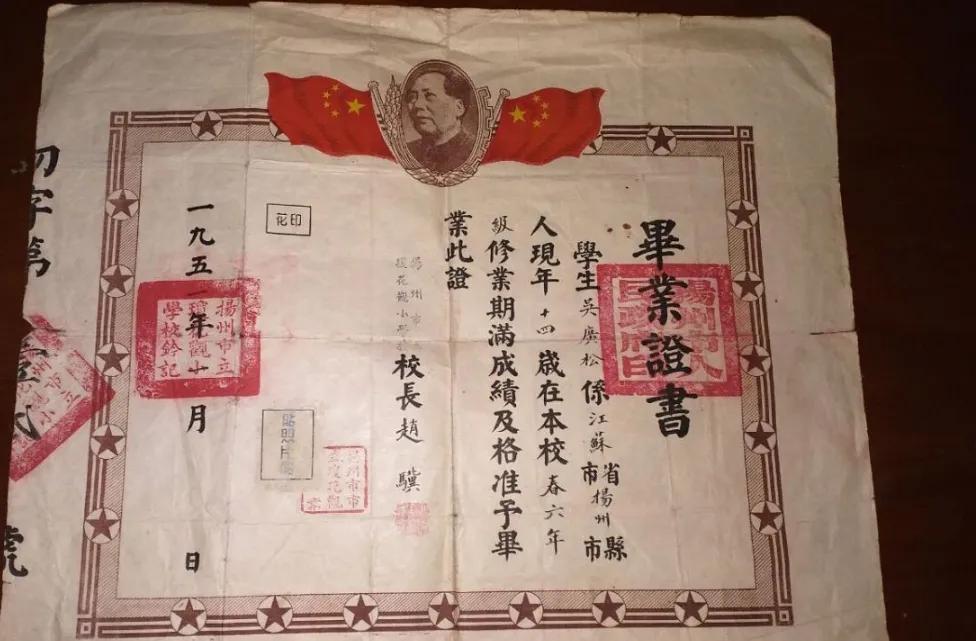 畢業證書
學生吳廣松係江蘇省揚州縣
市市
人現年十四歲在本校春六年
級修業期滿成績及格准予畢
業此證
揚州市
瓊花觀小學
校長趙驥
印花
貼照片處
一九五 年 月 日
揚州市立
瓊花觀小
學校鈐記
字第
號